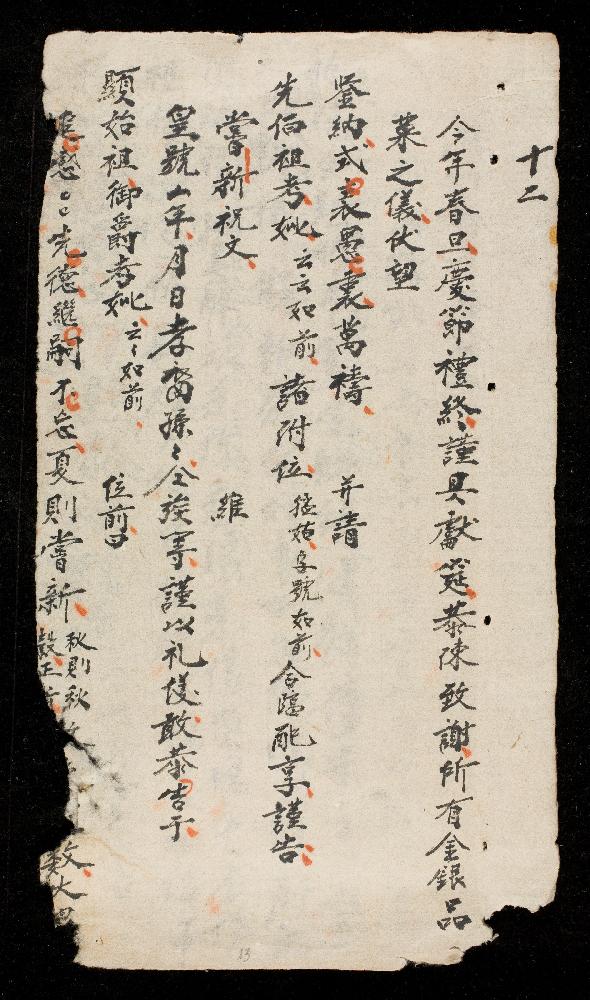 十二
今年春旦慶節禮終謹具獻筵恭陳致謝所有金銀品
菜之儀伏望
鍳納式表愚衷萬禱 并請
先伯祖考妣云云如前諸附位孟姑字號如前合臨配享謹告
嘗新祝文 維
皇號厶年月日孝裔孫〻仝族等謹以礼儀敢恭告于
顯始祖御爵考妣云〻如前 位前曰
先德繼嗣不忘夏則嘗新秋則秋
13